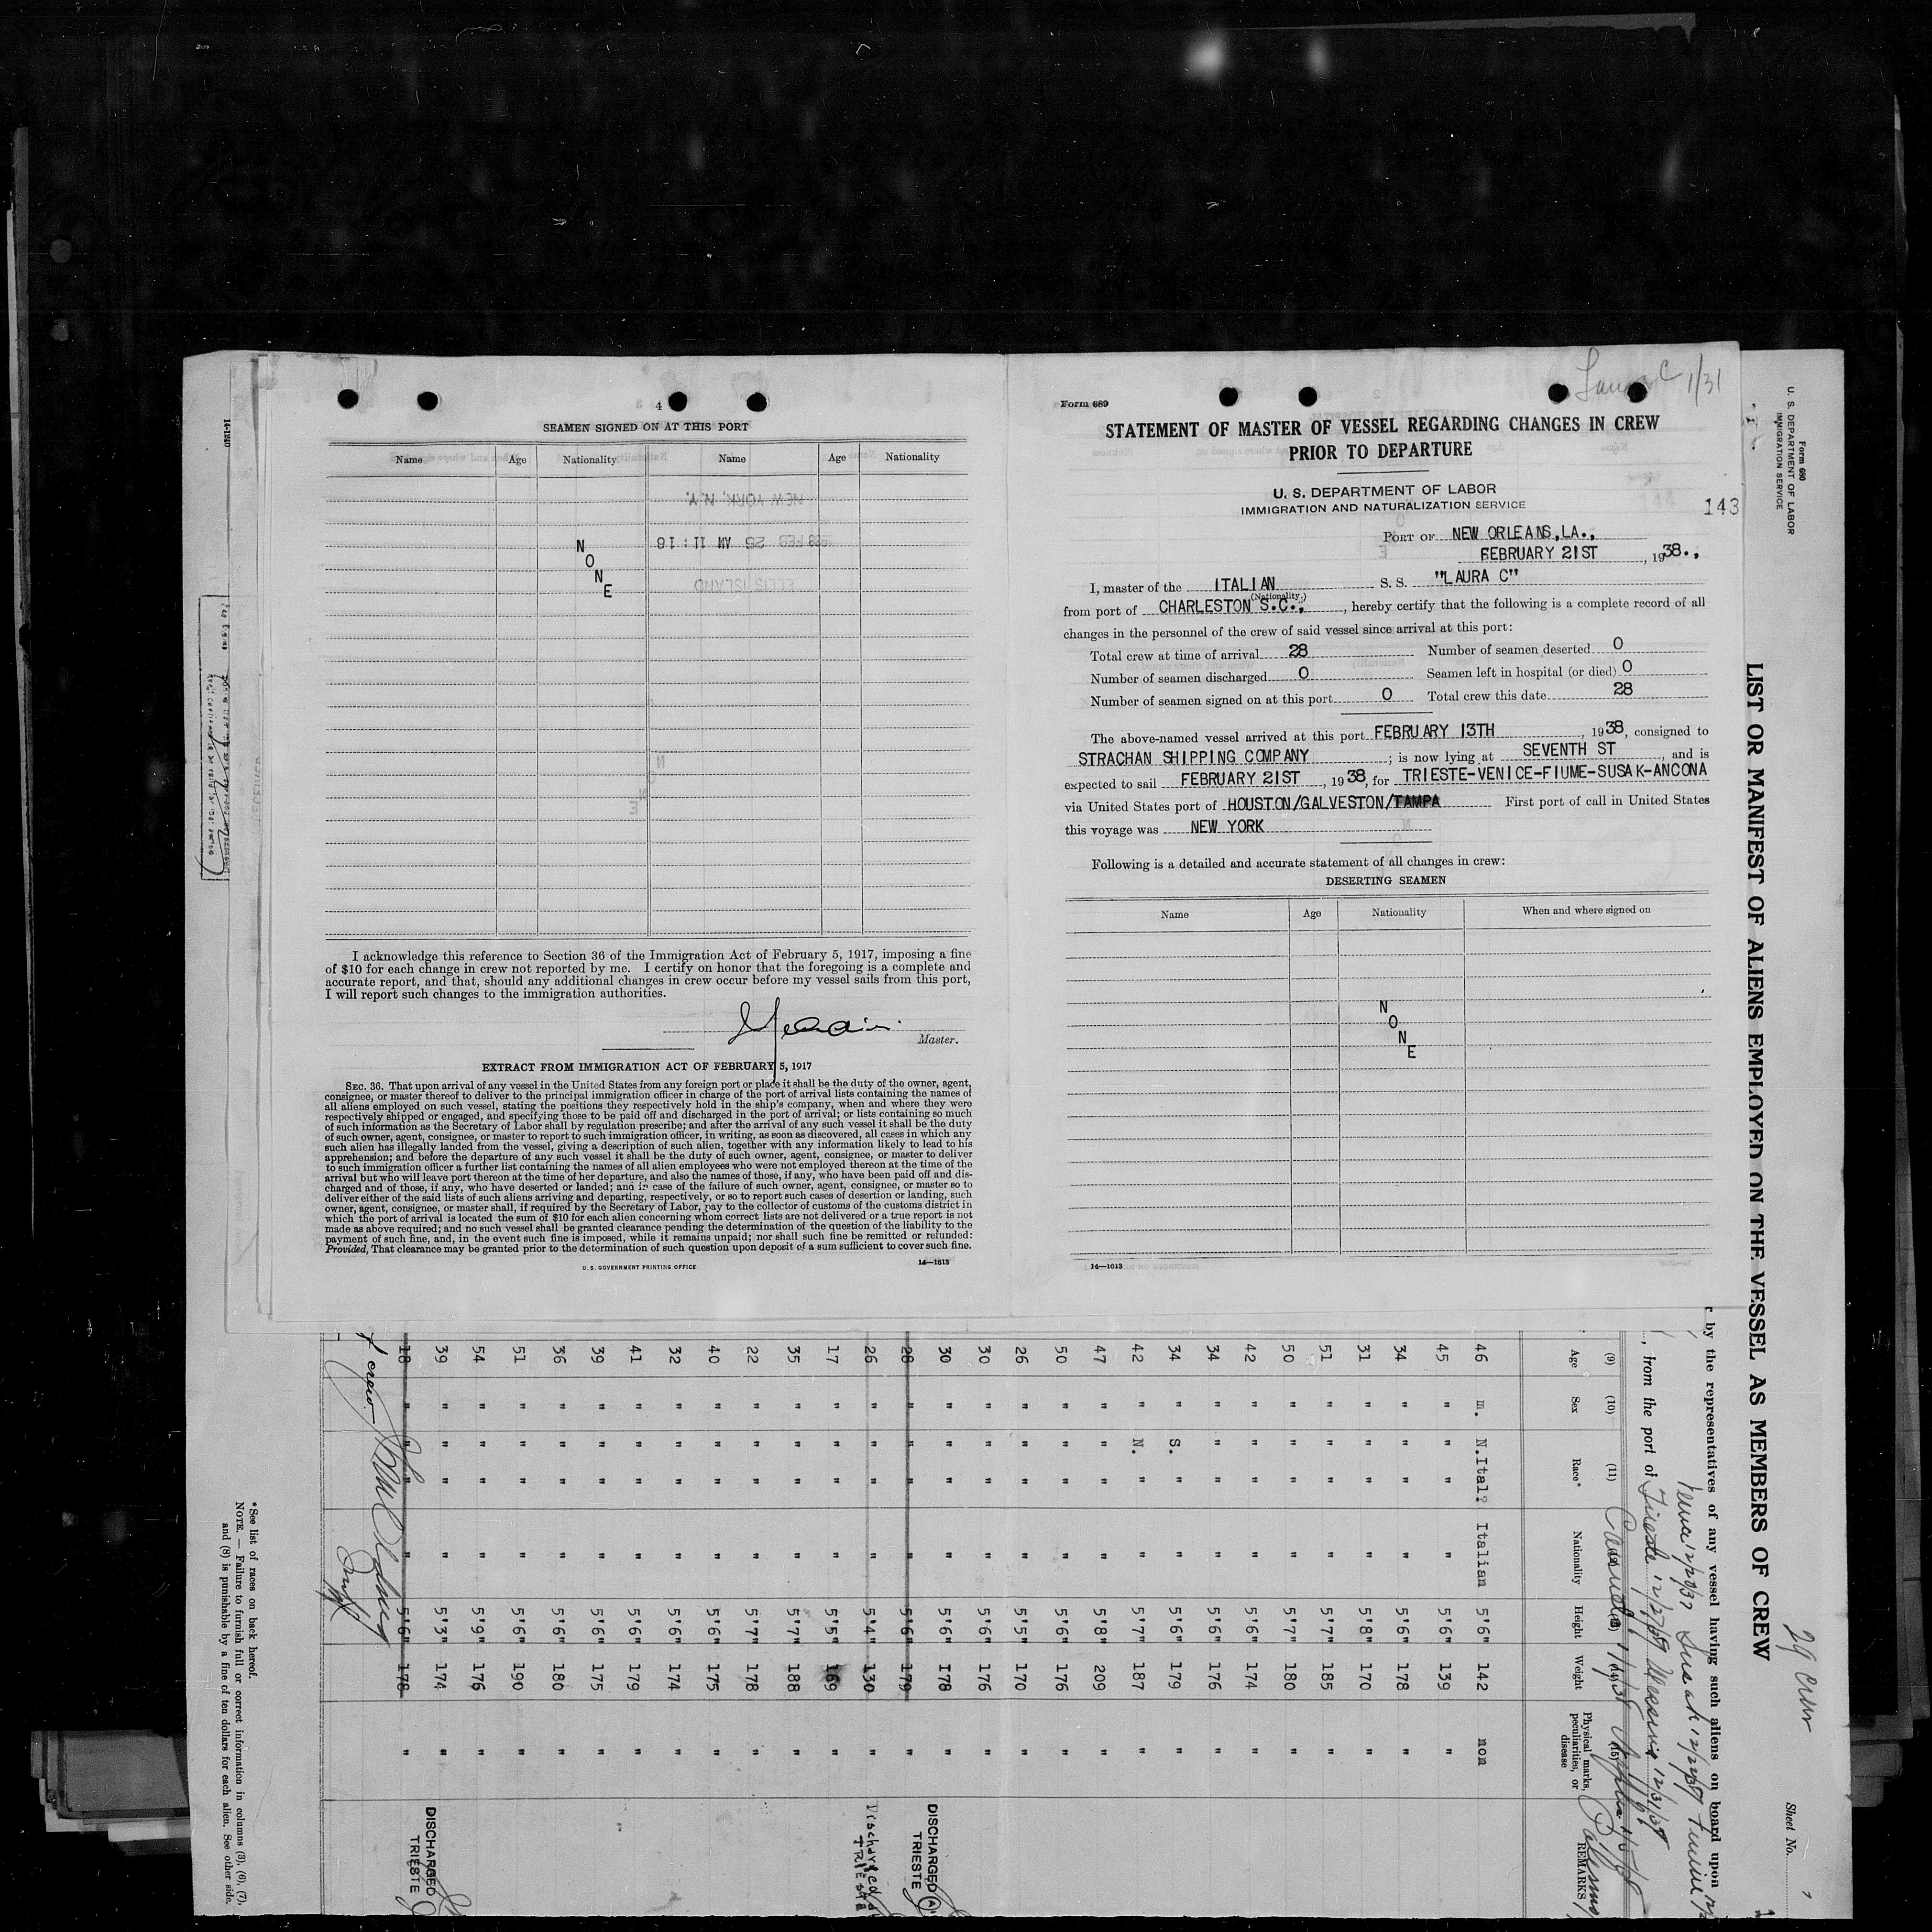 4
SEAMEN SIGNED ON AT THIS PORT
Name Age Nationality Name Age Nationality
NEW YORK, N.Y.
1938 FEB 25 AM 11:16
ELLIS ISLAND
N
O
N
E
I acknowledge this reference to Section 36 of the Immigration Act of February 5, 1917, imposing a fine
of $10 for each change in crew not reported by me. I certify on honor that the foregoing is a complete and
accurate report, and that, should any additional changes in crew occur before my vessel sails from this port,
I will report such changes to the immigration authorities.
Master.
EXTRACT FROM IMMIGRATION ACT OF FEBRUARY 5, 1917
SEC. 36. That upon arrival of any vessel in the United States from any foreign port or place it shall be the duty of the owner, agent,
consignee, or master thereof to deliver to the principal immigration officer in charge of the port of arrival lists containing the names of
all aliens employed on such vessel, stating the positions they respectively hold in the ship's company, when and where they were
respectively shipped or engaged, and specifying those to be paid off and discharged in the port of arrival; or lists containing so much
of such information as the Secretary of Labor shall by regulation prescribe; and after the arrival of any such vessel it shall be the duty
of such owner, agent, consignee, or master to report to such immigration officer, in writing, as soon as discovered, all cases in which any
such alien has illegally landed from the vessel, giving a description of such alien, together with any information likely to lead to his
apprehension; and before the departure of any such vessel it shall be the duty of such owner, agent, consignee, or master to deliver
to such immigration officer a further list containing the names of all alien employees who were not employed thereon at the time of the
arrival but who will leave port thereon at the time of her departure, and also the names of those, if any, who have been paid off and dis-
charged and of those, if any, who have deserted or landed; and in case of the failure of such owner, agent, consignee, or master so to
deliver either of the said lists of such aliens arriving and departing, respectively, or so to report such cases of desertion or landing, such
owner, agent, consignee, or master shall, if required by the Secretary of Labor, pay to the collector of customs of the customs district in
which the port of arrival is located the sum of $10 for each alien concerning whom correct lists are not delivered or a true report is not
made as above required; and no such vessel shall be granted clearance pending the determination of the question of the liability to the
payment of such fine, and, in the event such fine is imposed, while it remains unpaid; nor shall such fine be remitted or refunded:
Provided, That clearance may be granted prior to the determination of such question upon deposit of a sum sufficient to cover such fine.
U. S. GOVERNMENT PRINTING OFFICE 14—1013
Laura C 1/31
Form 689
STATEMENT OF MASTER OF VESSEL REGARDING CHANGES IN CREW
PRIOR TO DEPARTURE
U. S. DEPARTMENT OF LABOR
IMMIGRATION AND NATURALIZATION SERVICE
143
PORT OF NEW ORLEANS, LA.,
FEBRUARY 21ST, 1938.,
I, master of the ITALIAN S. S. "LAURA C"
(Nationality)
from port of CHARLESTON S.C., , hereby certify that the following is a complete record of all
changes in the personnel of the crew of said vessel since arrival at this port:
Total crew at time of arrival 28 Number of seamen deserted 0
Number of seamen discharged 0 Seamen left in hospital (or died) 0
Number of seamen signed on at this port 0 Total crew this date 28
The above-named vessel arrived at this port FEBRUARY 13TH, 1938, consigned to
STRACHAN SHIPPING COMPANY; is now lying at SEVENTH ST, and is
expected to sail FEBRUARY 21ST, 1938, for TRIESTE-VENICE-FIUME-SUSAK-ANCONA
via United States port of HOUSTON/GALVESTON/TAMPA First port of call in United States
this voyage was NEW YORK
Following is a detailed and accurate statement of all changes in crew:
DESERTING SEAMEN
Name Age Nationality When and where signed on
N
O
N
E
14—1013
14-1240
Form 680
U. S. DEPARTMENT OF LABOR
IMMIGRATION SERVICE
LIST OR MANIFEST OF ALIENS EMPLOYED ON THE VESSEL AS MEMBERS OF CREW
29 crew
Sheet No.
by the representatives of any vessel having such aliens on board upon
, from the port of Trieste 12/27/37 Messina 12/31/37
(9) (10) (11)
Age Sex Race* Nationality Height Weight Physical marks, peculiarities, or disease REMARKS
46 m. N.Ital? Italian 5'6" 142 non
45 " " " " 5'6" 139 "
34 " " " " 5'6" 178 "
31 " " " " 5'8" 170 "
51 " " " " 5'7" 185 "
50 " " " " 5'7" 180 "
42 " " " " 5'6" 174 "
34 " " " " 5'6" 176 "
34 " S. " " 5'6" 179 "
42 " N. " " 5'7" 187 "
47 " " " " 5'8" 209 "
50 " " " " 5'6" 176 "
26 " " " " 5'5" 170 "
30 " " " " 5'6" 176 "
30 " " " " 5'6" 178 " DISCHARGED TRIESTE
28 " " " " 5'6" 179 "
26 " " " " 5'4" 130 " Discharged TRIESTE
17 " " " " 5'5" 169 "
35 " " " " 5'7" 188 "
22 " " " " 5'7" 178 "
40 " " " " 5'6" 175 "
32 " " " " 5'6" 174 "
41 " " " " 5'6" 179 "
39 " " " " 5'6" 175 "
36 " " " " 5'6" 180 "
51 " " " " 5'6" 190 "
54 " " " " 5'9" 176 "
39 " " " " 5'3" 174 "
18 " " " " 5'6" 178 " DISCHARGED TRIESTE
crew
*See list of races on back hereof.
NOTE.—Failure to furnish full or correct information in columns (3), (6), (7),
and (8) is punishable by a fine of ten dollars for each alien. See other side.